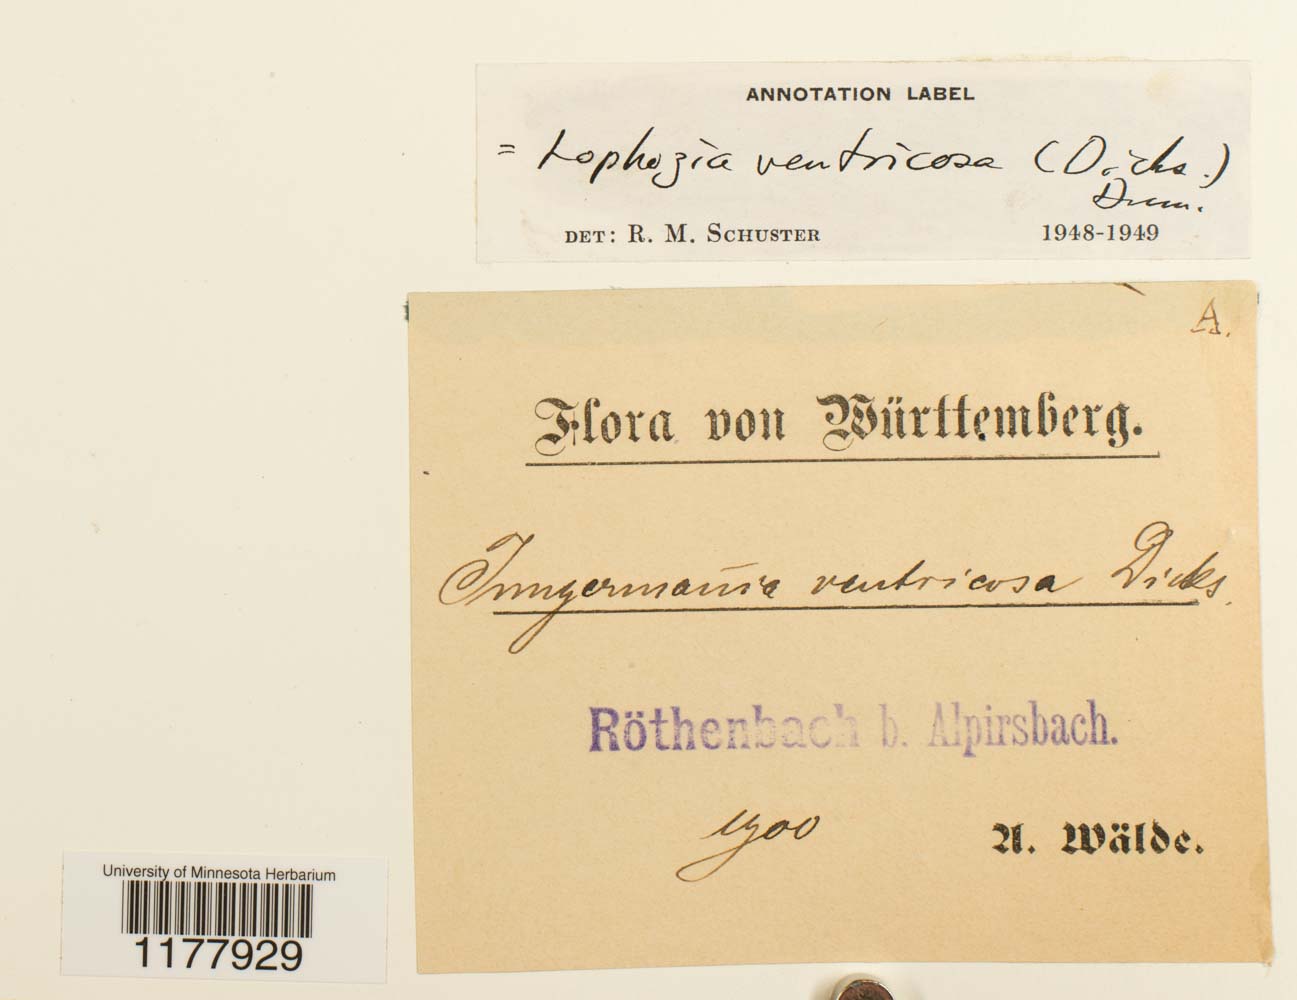 ANNOTATION LABEL
= Lophozia ventricosa (Dicks.)
Dum.
DET: R. M. SCHUSTER 1948-1949
A.
Flora von Württemberg.
Jungerman̄ia ventricosa Dicks.
Röthenbach b. Alpirsbach.
1900
A. Wälde.
University of Minnesota Herbarium
1177929